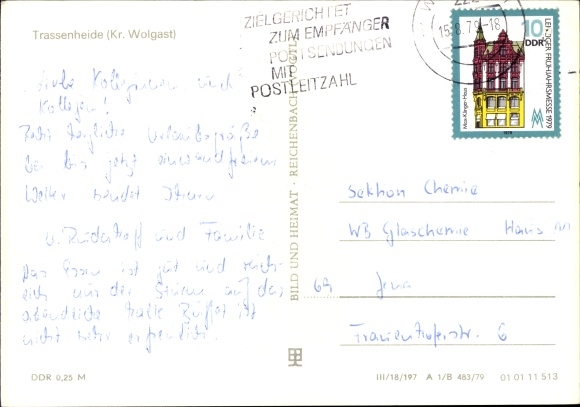 Trassenheide (Kr. Wolgast)
ZIELGERICHTET
ZUM EMPFÄNGER
POSTSENDUNGEN
MIT
POSTLEITZAHL
222
15.8.79-18
10
DDR
LEIPZIGER FRÜHJAHRSMESSE 1979
Max-Klinger-Haus
1979
Kolleginnen und
Kollegen!
Recht herzliche Urlaubsgrüße
bei bis jetzt einwandfreiem
Wetter sendet Ihnen
und Familie
Das Essen ist gut und reich-
lich nur das auf das
abendliche kalte Büffet ist
nicht sehr erfreulich.
BILD UND HEIMAT · REICHENBACH (VOGTL)
Sektion Chemie
WB Glaschemie Haus
69 Jena
Fraunhoferstr. 6
DDR 0,25 M
III/18/197 A 1/B 483/79 01 01 11 513